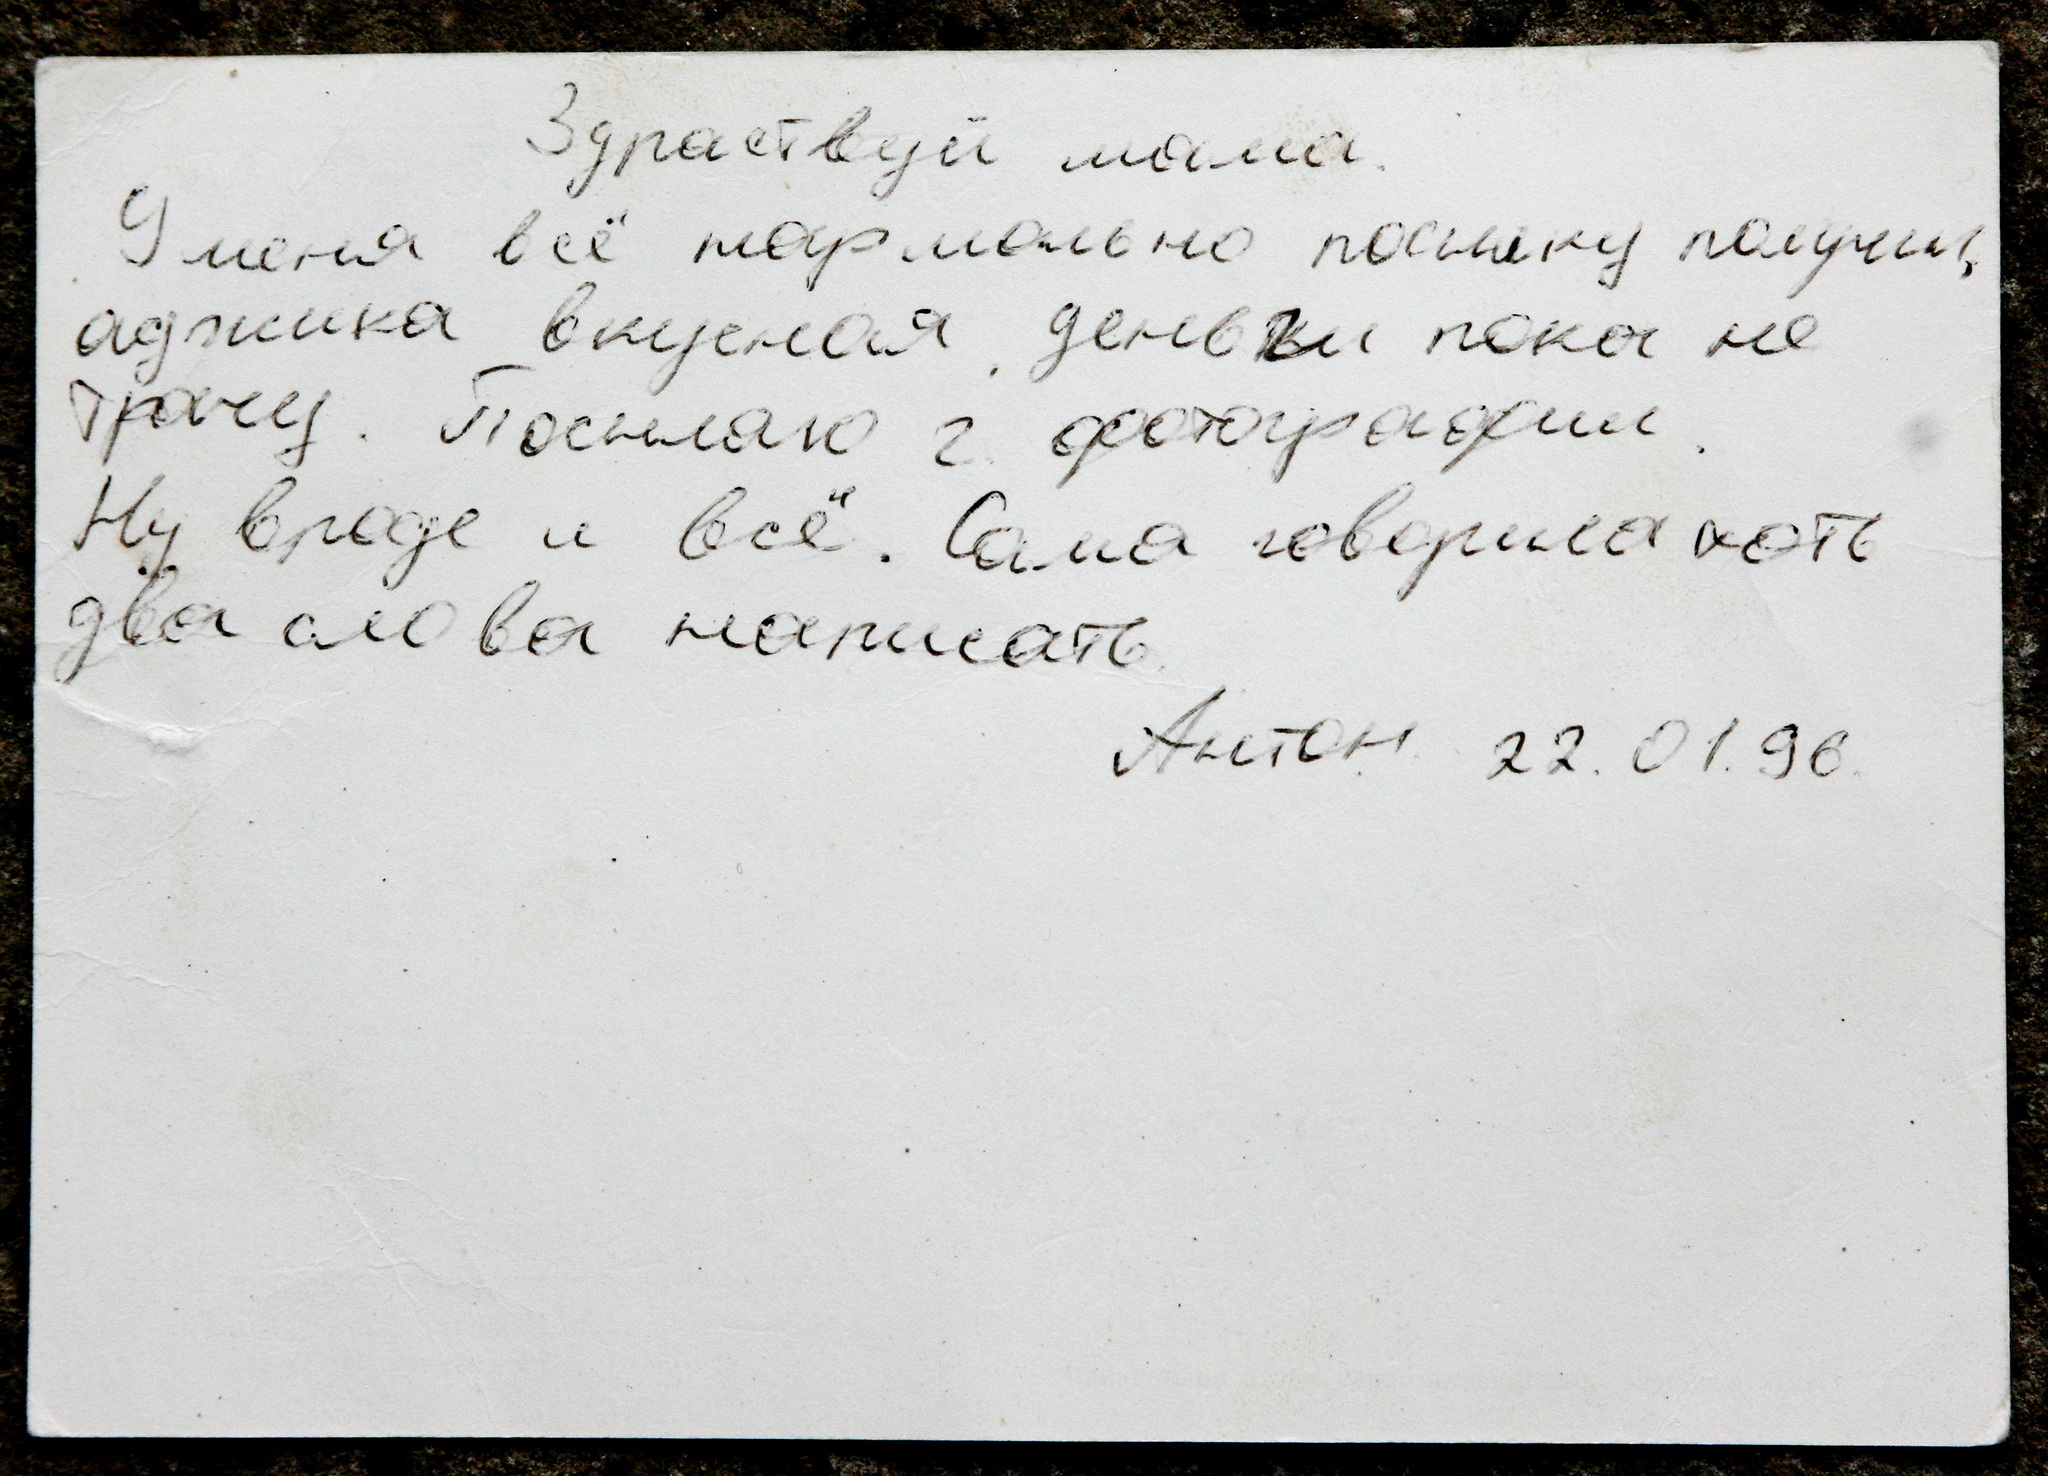 Здраствуй мама.
У меня всё нармально посылку получил,
аджика вкусная, деньги пока не
трачу. Посылаю 2 фотографии.
Ну вроде и всё. Сама говорила хоть
два слова написать.
Антон 22.01.96.